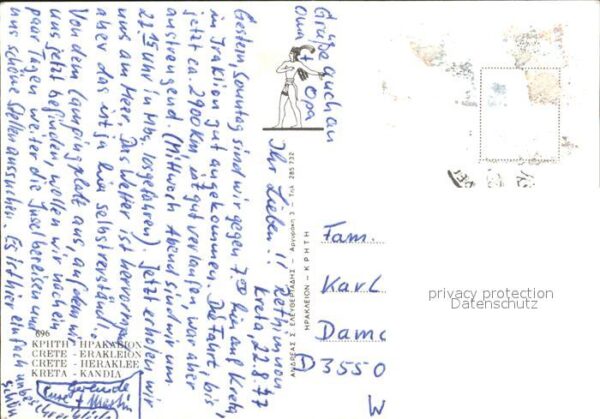 Kreta, 22.8.77
Ihr Lieben in Rethimnon
Gestern, Sonntag sind wir gegen 7⁰⁰ hier auf Kreta,
in Iraklion gut angekommen. Die Fahrt, bis
jetzt ca. 2900 km ist gut verlaufen, war aber
anstrengend. (Mittwoch Abend sind wir um
22.15 Uhr in Mbg. losgefahren). Jetzt erholen wir
uns am Meer. Das Wetter ist hervorragend
aber das ist ja hier selbstverständl.
Von dem Campingplatz aus, auf dem wir
uns jetzt befinden, wollen wir nach ein
paar Tagen weiter die Insel bereisen und
uns schöne Stellen aussuchen. Es ist hier einfach unbe-
schreiblich schön
Eure
+ Martin
Grüße auch an
Oma + Opa
Fam.
Karl
Dam
D 3550
896
ΚΡΗΤΗ - ΗΡΑΚΛΕΙΟΝ
CRETE - ERAKLEION
CRETE - HERAKLEE
KRETA - KANDIA
ΑΝΔΡΕΑΣ Σ. ΕΛΕΥΘΕΡΙΑΔΗΣ - Αργυράκη 3 - Τηλ. 285 732
ΗΡΑΚΛΕΙΟΝ - ΚΡΗΤΗ
privacy protection
Datenschutz